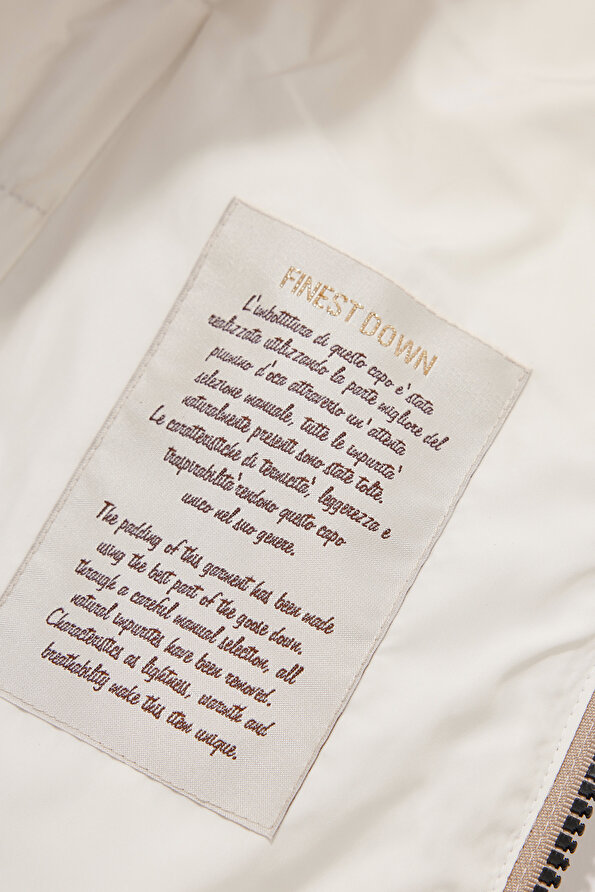 FINEST DOWN
L'imbottitura di questo capo e' stata
realizzata utilizzando la parte migliore del
piumino d'oca attraverso un'attenta
selezione manuale, tutte le impurita'
naturalmente presenti sono state tolte.
Le caratteristiche di termicita', leggerezza e
traspirabilita' rendono questo capo
unico nel suo genere.
The padding of this garment has been made
using the best part of the goose down,
through a careful manual selection, all
natural impurites have been removed.
Characteristics as lightness, warmth and
breathability make this item unique.